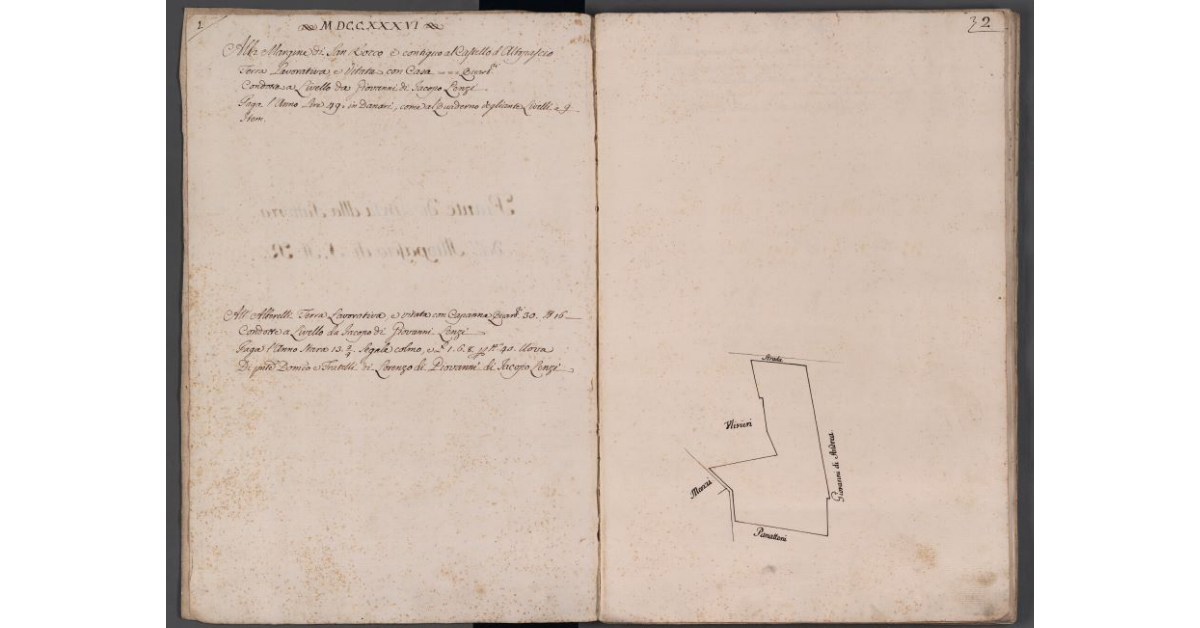 1
MDCCXXXVI
Alla Margine di San Rocco e contiguo al Castello d'Altopascio
Terra Lavorativa, e Vitata con Casa
Condotta a Livello da Giovanni di Jacopo Lenzi
Paga l'Anno Lire 49. in Danari, come al Quaderno Livelli
Item
All Alberelli Terra Lavorativa, e vitata con Capanna Quarre 30. 16
Condotta a Livello da Jacopo di Giovanni Lenzi
Paga l'Anno 13 3/4 Segale colmo, e 1.6.8 40. Uova
Di pnte e Fratelli di Lorenzo di Giovanni di Jacopo Lenzi
32
Strada
Ulivieri
Giovanni di Andrea
Panattoni